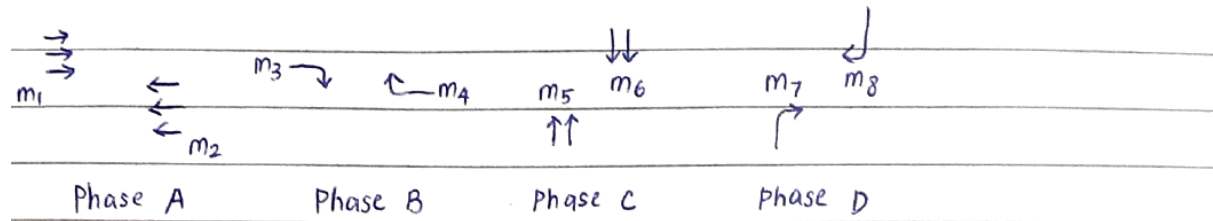 m3 m4 m5 m6 m7 m8
m1
m2
Phase A Phase B Phase C Phase D